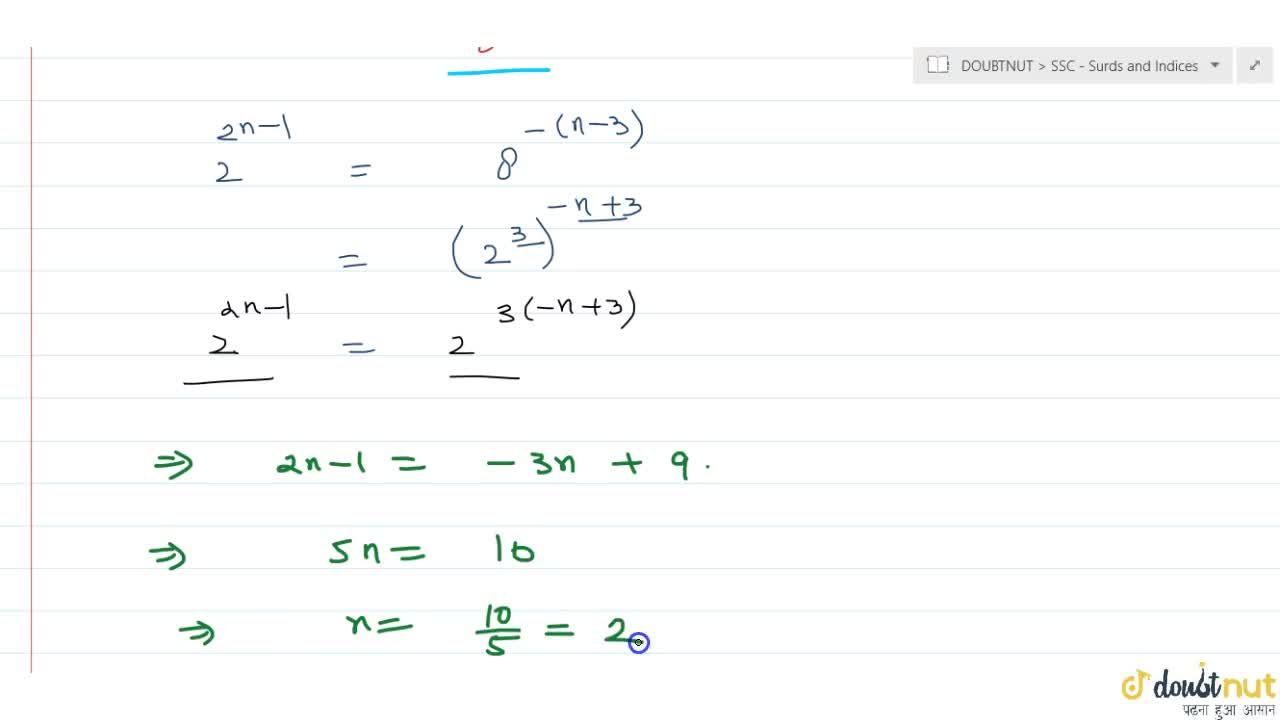 DOUBTNUT > SSC - Surds and Indices
2^{2n-1} = 8^{-(n-3)}
= (2^3)^{-n+3}
2^{2n-1} = 2^{3(-n+3)}
⇒ 2n-1 = -3n + 9.
⇒ 5n = 10
⇒ n = 10/5 = 2
doubtnut
पढना हुआ आसान